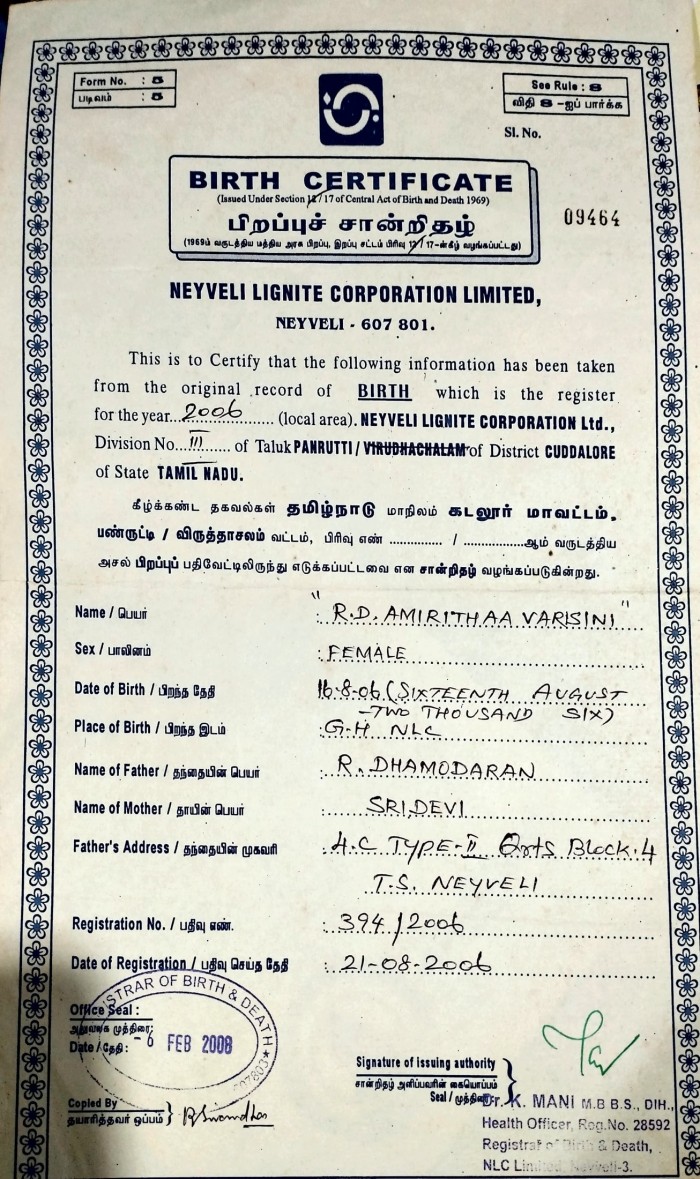 Form No. : 5
படிவம் : 5
See Rule : 8
விதி 8 -ஐப் பார்க்க
Sl. No.
BIRTH CERTIFICATE
(Issued Under Section 12/17 of Central Act of Birth and Death 1969)
பிறப்புச் சான்றிதழ்
(1969ம் வருடத்திய மத்திய அரசு பிறப்பு, இறப்பு சட்டம் பிரிவு 12/17-ன்கீழ் வழங்கப்பட்டது)
09464
NEYVELI LIGNITE CORPORATION LIMITED,
NEYVELI - 607 801.
This is to Certify that the following information has been taken
from the original record of BIRTH which is the register
for the year...2006............ (local area). NEYVELI LIGNITE CORPORATION Ltd.,
Division No...III...... of Taluk PANRUTTI / VIRUDHACHALAM of District CUDDALORE
of State TAMIL NADU.
கீழ்க்கண்ட தகவல்கள் தமிழ்நாடு மாநிலம் கடலூர் மாவட்டம்,
பண்ருட்டி / விருத்தாசலம் வட்டம், பிரிவு எண் .............. / ................ஆம் வருடத்திய
அசல் பிறப்புப் பதிவேட்டிலிருந்து எடுக்கப்பட்டவை என சான்றிதழ் வழங்கப்படுகின்றது.
Name / பெயர் : "R.D. AMIRITHAA VARISINI"
Sex / பாலினம் : FEMALE
Date of Birth / பிறந்த தேதி 16-8-06 (SIXTEENTH AUGUST
-TWO THOUSAND SIX)
Place of Birth / பிறந்த இடம் : G-H NLC
Name of Father / தந்தையின் பெயர் : R. DHAMODARAN
Name of Mother / தாயின் பெயர் : SRIDEVI
Father's Address / தந்தையின் முகவரி : 4.C TYPE-II Qrts BLOCK.4
T.S. NEYVELI
Registration No. / பதிவு எண். : 394/2006
Date of Registration / பதிவு செய்த தேதி : 21-08-2006
STRAR OF BIRTH & DEATH
607803
Office Seal :
அலுவலக முத்திரை:
Date / தேதி: - 6 FEB 2008
Signature of issuing authority
சான்றிதழ் அளிப்பவரின் கையொப்பம்
Seal / முத்திரை
Copied By
தயாரித்தவர் ஒப்பம்
Dr. K. MANI M.B B.S., DIH.,
Health Officer, Reg.No. 28592
Registrar of Birth & Death,
NLC Limited, Neyveli-3.